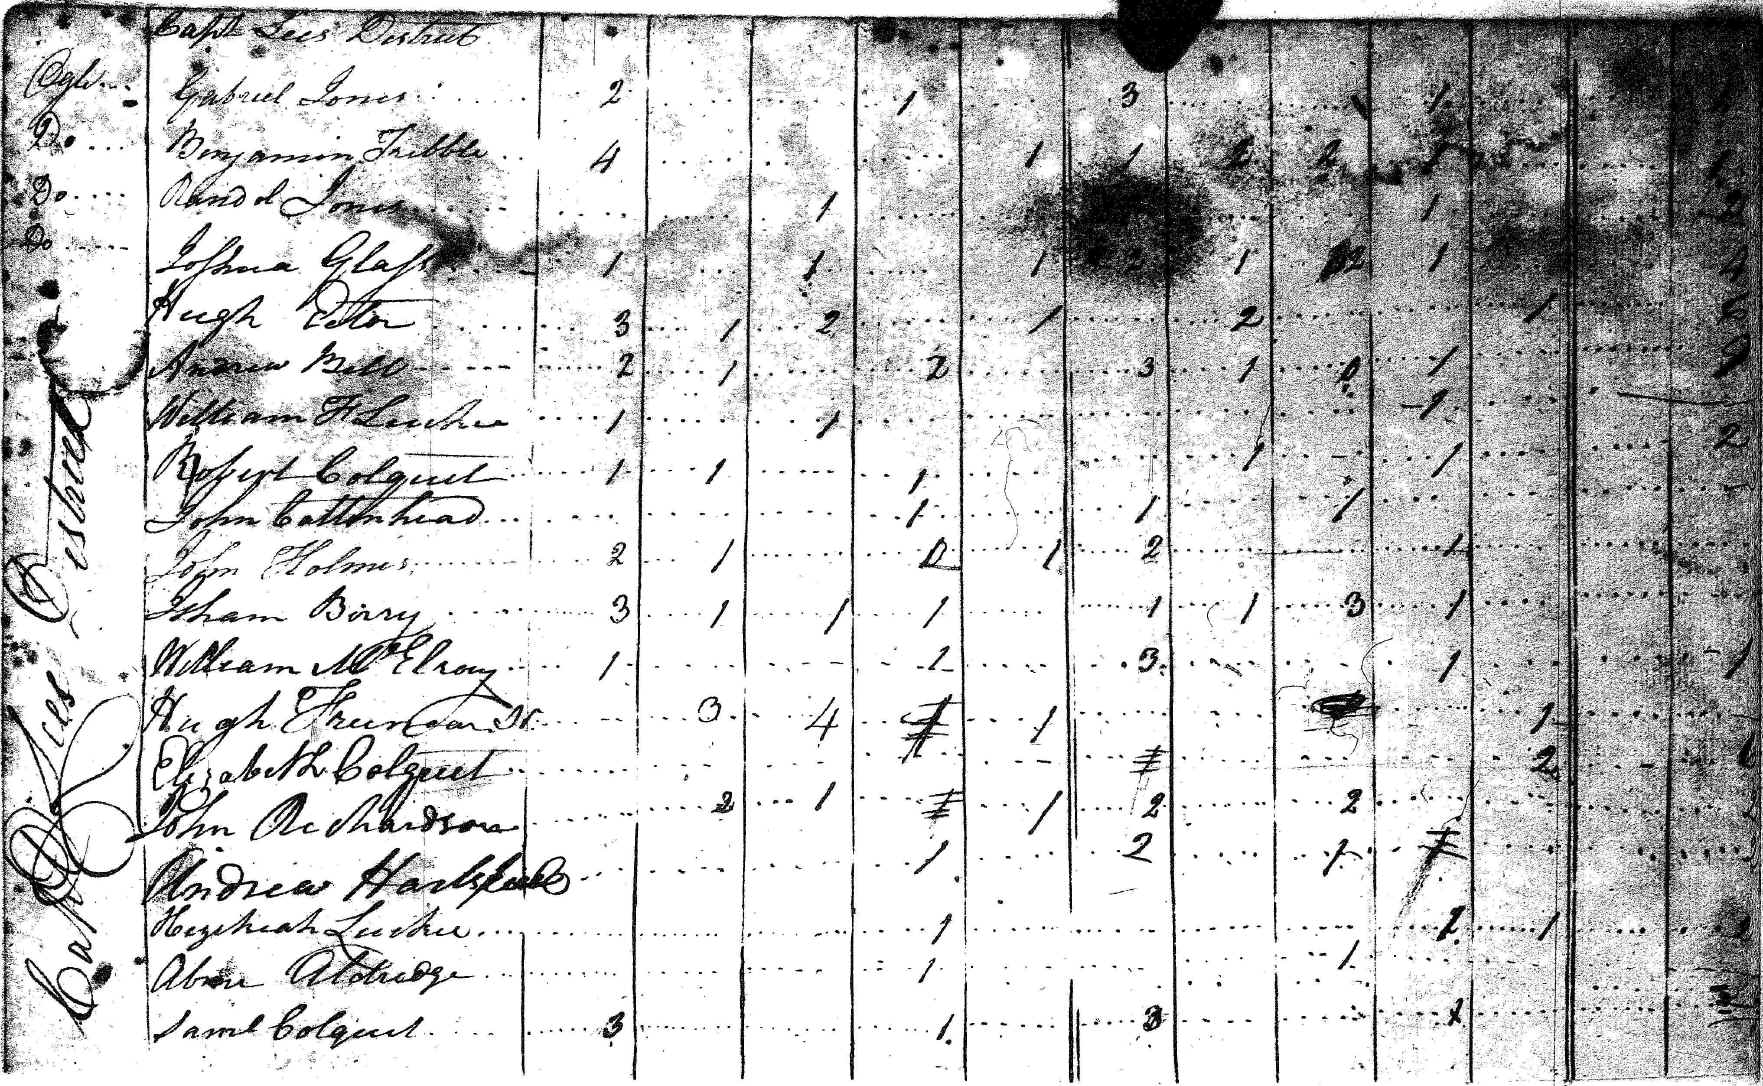 Capt Lees District
Ogle Gabriel Jones 2 1 3 1
Do Benjamin Tribble 4 1 1 2 2 1 1
Do Randol Jones 1 1 2
Do Joshua Glass 1 1 1 2 1 2 1 4
Hugh Ector 3 1 2 1 2 1
Andrew Bell 2 1 2 3 1 1
William F Luckie 1 1 1
Robert Colquet 1 1 1 1 1 2
John Cattenhead 1 1 1
John Holmes 2 1 1 2 1
Isham Berry 3 1 1 1 1 1 3 1
William McElroy 1 1 3 1 1
Hugh Freeman Sr. 3 4 1 1
Elizabeth Colquet 2
John Richardson 2 1 1 2 2
Andrew Hartsfield 1 2 1
Hezekiah Luckie 1 1 1
Abner Aldridge 1 1
Saml Colquet 3 1 3 1
Capt Lees District